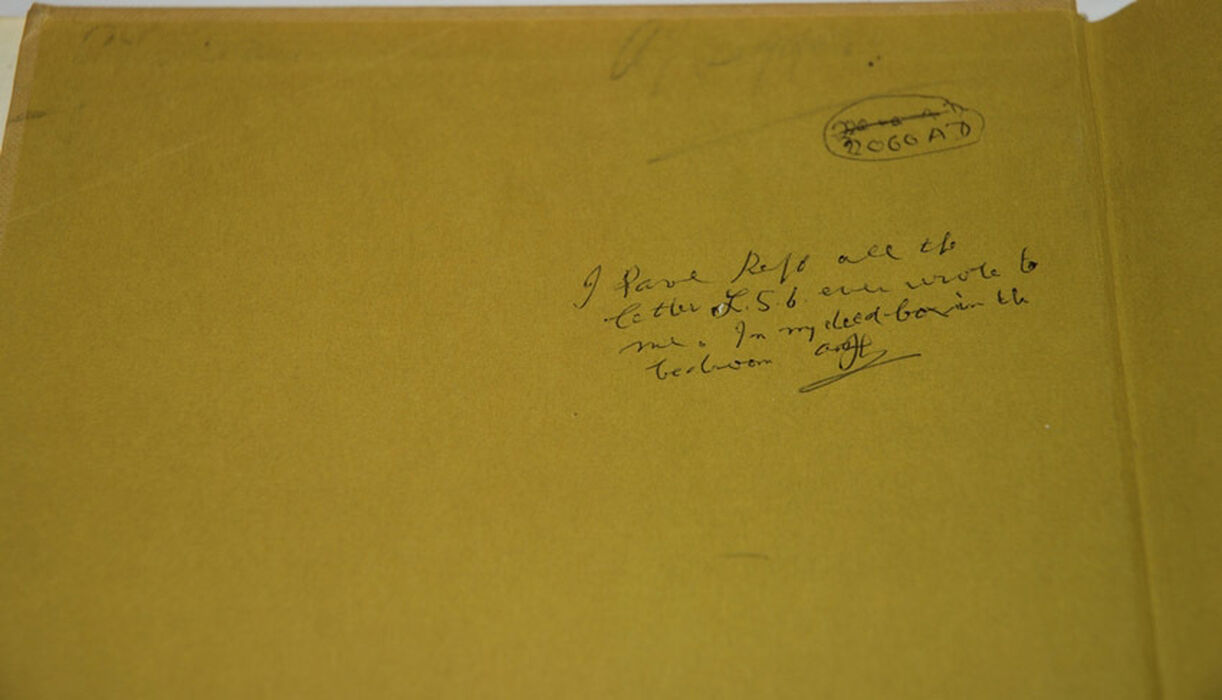 2060 AD
I have kept all the
letter L.S.B. ever wrote to
me. In my deed-box in the
bedroom